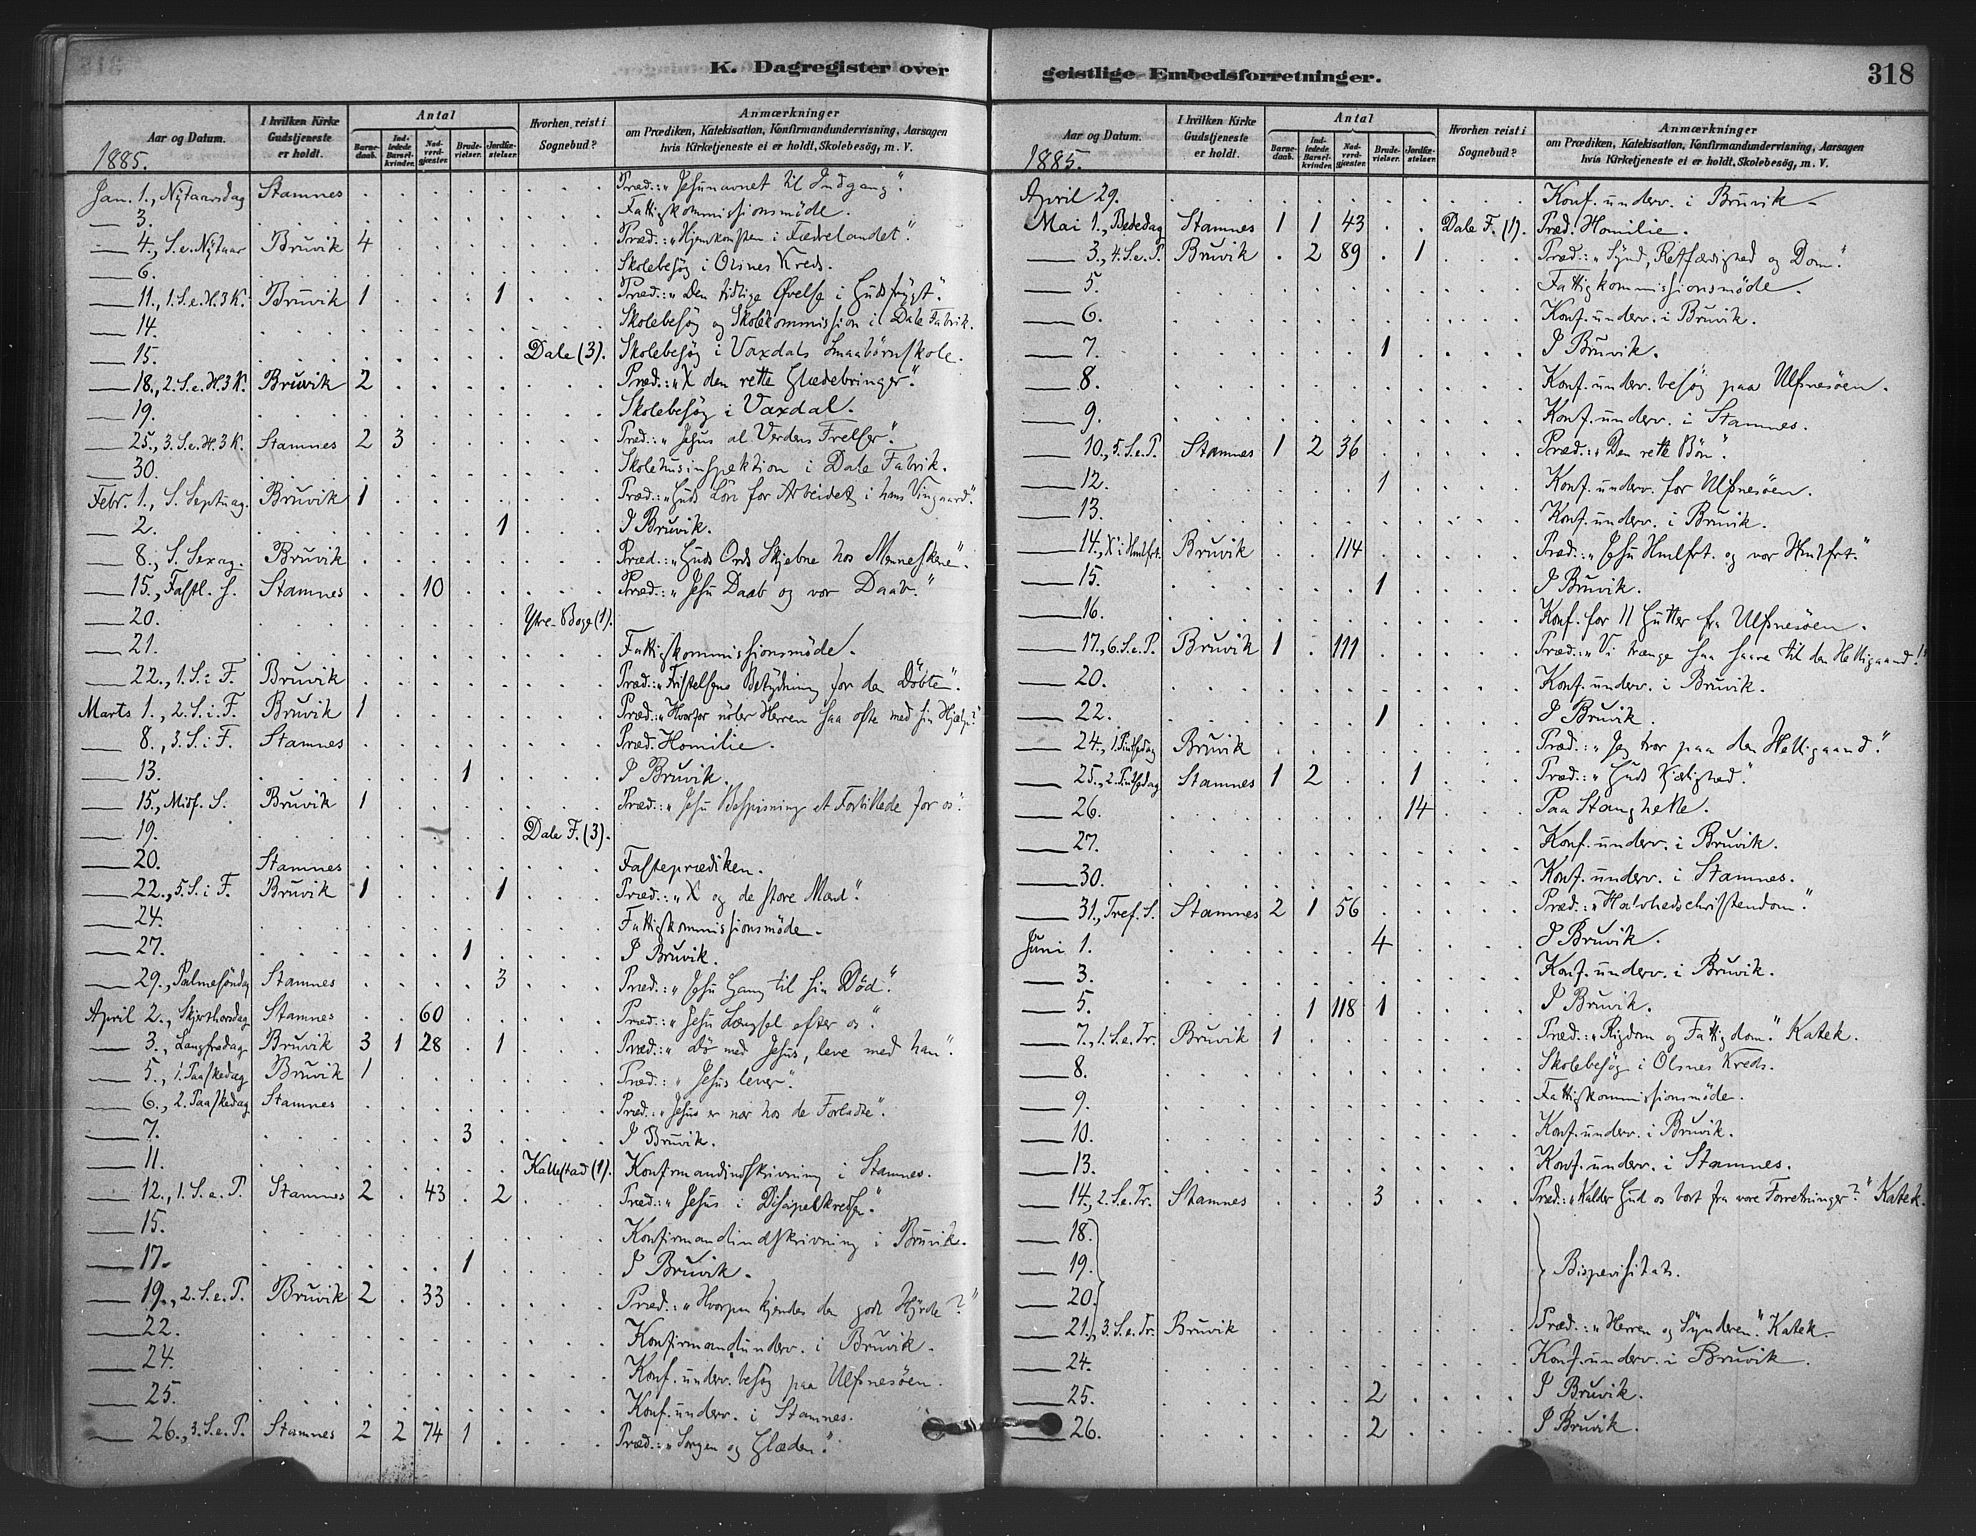 K. Dagregister over
Aar og Datum. I hvilken Kirke Gudstjeneste er holdt. Antal Barnedaab. Indledede Barselkvinder. Nadverdgjæster. Brudevielser. Jordfæstelser. Hvorhen reist i Sognebud? Anmærkninger om Prædiken, Katekisation, Konfirmandundervisning, Aarsagen hvis Kirketjeneste ei er holdt, Skolebesøg, m. V.
1885.
Jan. 1., Nytaarsdag Stamnes Præd.: „Jesunavnet til Indgang“.
3. Fattigkommissionsmøde.
4., S. e. Nytaar Bruvik 4 Præd.: „Hjemkomsten i Fædrelandet“
6. Skolebesøg i Olsnes Kreds.
11., 1. S. e. H. 3 K. Bruvik 1 1 Præd.: „Den tidlige Øvelse i Gudsfrygt“.
14. Skolebesøg og Skolekommission i Dale Fabrik.
15. Dale (3). Skolebesøg i Vaxdals Smaabørnskole.
18., 2. S. e. H. 3 K. Bruvik 2 Præd.: „X den rette Glædebringer“.
19. Skolebesøg i Vaxdal.
25., 3. S. e. H. 3 K. Stamnes 2 3 Præd.: „Jesus al Verdens Frelser“.
30. Skolehusinspektion i Dale Fabrik.
Febr. 1., S. Septuag. Bruvik 1 Præd.: „Guds Løn for Arbeidet i hans Vingaard“.
2. 1 I Bruvik.
8., S. Sexag. Bruvik Præd.: „Guds Ords Skjebne hos Menneskene“.
15., Fastl. S. Stamnes 10 Præd.: „Jesu Daab og vor Daab“
20. Ytre-Boge (1).
21. Fattigkommissionsmøde.
22., 1. S. i F. Bruvik Præd.: „Fristelsens Betydning for den Døbte“.
Marts 1., 2. S. i F. Bruvik 1 Præd.: „Hvorfor nøler Herren saa ofte med sin Hjælp?“
8., 3. S. i F. Stamnes Præd. Homilie.
13. 1 I Bruvik.
15., Midf. S. Bruvik 1 Præd.: „Jesu Bespisning et Forbillede for os“.
19. Dale F. (3).
20. Stamnes Fasteprædiken.
22., 5. S. i F. Bruvik 1 1 Præd.: „X og de store Mænd“.
24. Fattigkommissionsmøde.
27. 1 I Bruvik.
29., Palmesøndag Stamnes 3 Præd.: „Jesu Gang til sin Død“.
April 2., Skjærthorsdag Stamnes 60 Præd.: „Jesu Længsel efter os“.
3., Langfredag Bruvik 3 1 28 1 Præd.: „dø med Jesus, leve med ham“.
5., 1. Paaskedag Bruvik 1 Præd.: „Jesus lever“.
6., 2. Paaskedag Stamnes Præd.: „Jesus er nær hos de Forladte“.
7. 3 I Bruvik.
11. Kallestad (1). Konfirmandindskrivning i Stamnes.
12., 1. S. e. P. Stamnes 2 43 2 Præd.: „Jesus i Discipelkredsen“
15. Konfirmandindskrivning i Bruvik.
17. 1 I Bruvik.
19., 2. S. e. P. Bruvik 2 33 Præd.: „Hvorpaa kjendes den gode Hyrde?“
22. Konfirmandunderv. i Bruvik.
24. Konf. underv. besøg paa Ulfsnesøen.
25. Konf. underv. i Stamnes.
26., 3. S. e. P. Stamnes 2 2 74 1 Præd.: „Sorgen og Glæden“.
geistlige Embedsforretninger. 318
Aar og Datum. I hvilken Kirke Gudstjeneste er holdt. Antal Barnedaab. Indledede Barselkvinder. Nadverdgjæster. Brudevielser. Jordfæstelser. Hvorhen reist i Sognebud? Anmærkninger om Prædiken, Katekisation, Konfirmandundervisning, Aarsagen hvis Kirketjeneste ei er holdt, Skolebesøg, m. V.
1885.
April 29. Konf. underv. i Bruvik
Mai 1., Bededag Stamnes 1 1 43 Dale F. (1). Præd. Homilie.
3., 4. S. e. P. Bruvik 2 89 1 Præd.: „Synd, Retfærdighed og Dom“.
5. Fattigkommissionsmøde.
6. Konf. underv. i Bruvik.
7. 1 I Bruvik.
8. Konf. underv. besøg paa Ulfsnesøen.
9. Konf. underv. i Stamnes.
10., 5. S. e. P. Stamnes 1 2 36 Præd.: „Den rette Bøn“.
12. 1 Konf. underv. for Ulfsnesøen.
13. Konf. underv. i Bruvik.
14., X' i Hmlfrt. Bruvik 114 Præd.: „Jesu Hmlfrt. og vor Hmlfrt.“
15. 1 I Bruvik.
16. Konf. for 11 Gutter fra Ulfsnesøen.
17., 6. S. e. P. Bruvik 1 111 Præd.: „Vi trænge saa saare til den Helligaand!“
20. Konf. underv. i Bruvik.
22. 1 I Bruvik.
24., 1. Pintsedag Bruvik Præd.: „Jeg tror paa den Helligaand“.
25., 2. Pintsedag Stamnes 1 2 1 Præd.: „Guds Kjærlighed“.
26. 14 Paa Stanghelle.
27. Konf. underv. i Bruvik.
30. Konf. underv. i Stamnes.
31., Tref. S. Stamnes 2 1 56 Præd.: „Halvhedschristendom“.
Juni 1. 4 I Bruvik.
3. Konf. underv. i Bruvik.
5. 1 118 1 I Bruvik.
7., 1. S. e. Tr. Bruvik 1 Præd.: „Rigdom og Fattigdom“. Katek.
8. Skolebesøg i Olsnes Kreds.
9. Fattigkommissionsmøde.
10. Konf. underv. i Bruvik.
13. Konf. underv. i Stamnes.
14., 2. S. e. Tr. Stamnes 3 Præd.: „Kalder Gud os bort fra vore Forretninger?“ Katek.
18.
19. Bispevisitats.
20.
21., 3. S. e. Tr. Bruvik Præd.: „Herren og Synderen“. Katek.
24. Konf. underv. i Bruvik.
25. 2 I Bruvik.
26. 2 I Bruvik.